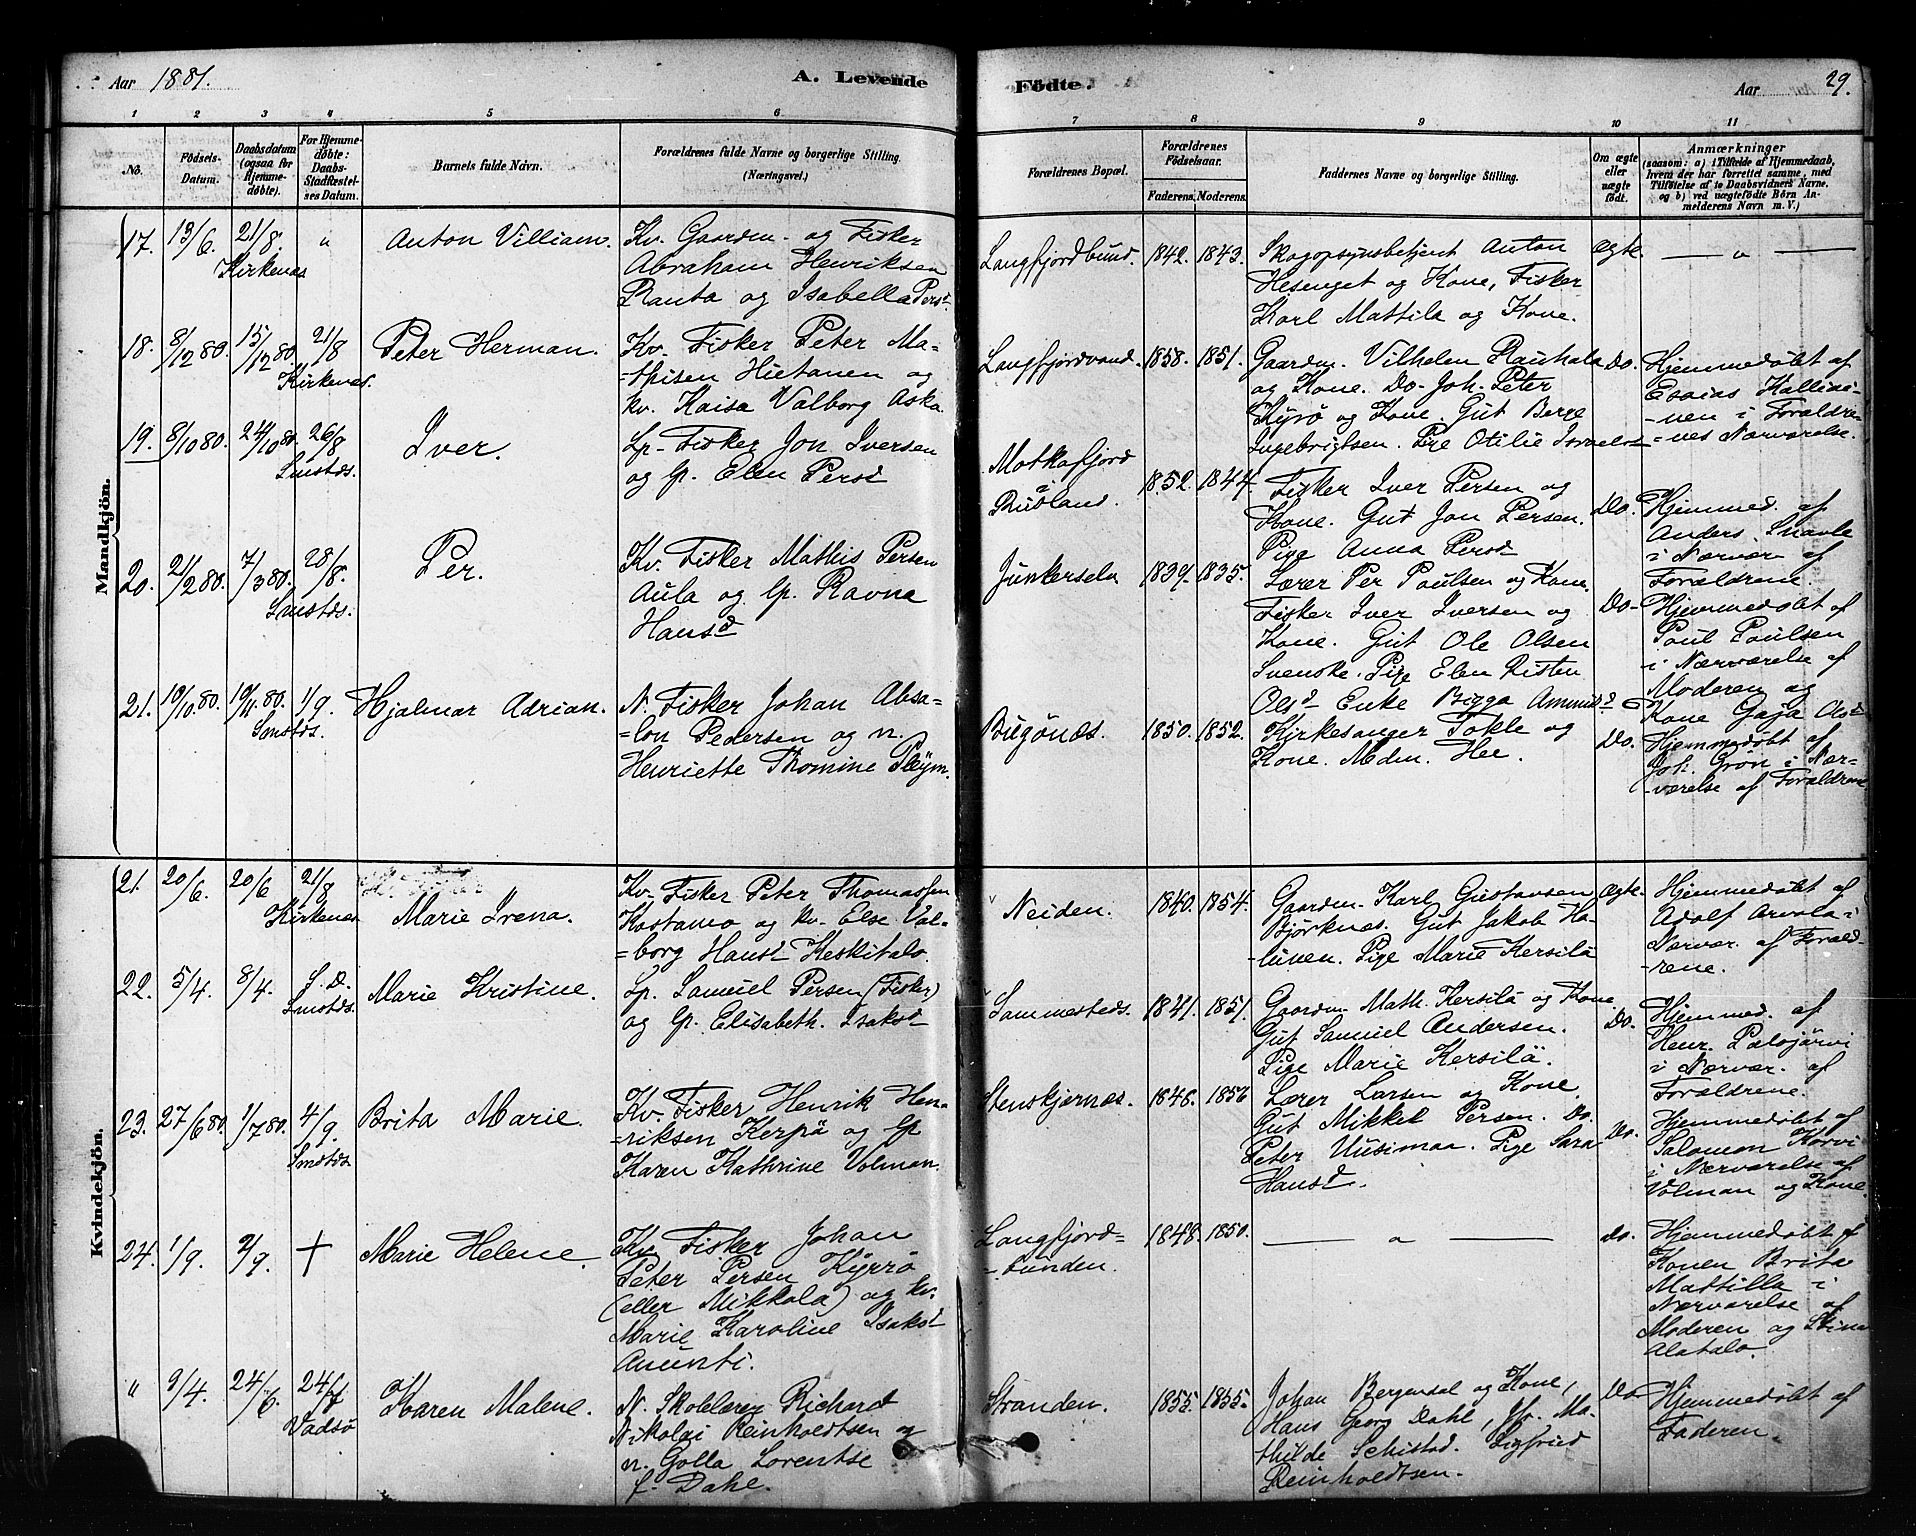 Aar 1881.
A. Levende
Fødte.
Aar
29.
1 2 3 4 5 6 7 8 9 10 11
No.
Fødsels-Datum.
Daabsdatum (ogsaa for Hjemme-døbte).
For Hjemme-døbte: Daabs-Stadfæstel-ses Datum.
Barnets fulde Navn.
Forældrenes fulde Navne og borgerlige Stilling. (Næringsvei.)
Forældrenes Bopæl.
Forældrenes Fødselsaar.
Faderens. Moderens.
Faddernes Navne og borgerlige Stilling.
Om ægte eller uægte født.
Anmærkninger
(saasom: a) i Tilfælde af Hjemmedaab,
hvem der har forrettet samme, med
Tilføielse af to Daabsvidners Navne.
og b) ved uægtefødte Børn An-
melderens Navn m. V.)
Mandkjön.
17. 13/6. 21/8. Kirkenæs " Anton Villiam.
Kv. Gaardm. og Fisker
Abraham Henriksen
Ranta og Isabella Persd
Langfjordbund. 1842. 1843.
Skogopsynsbetjent Anton
Hesenget og Kone, Fisker
Karl Mattila og Kone.
Ægte. — " —
18. 8/12 80. 15/12 80. 21/8 Kirkenæs. Peter Herman.
Kv. Fisker Peter Ma-
=thisen Hietanen og
kv. Kaisa Valborg Aska
Langfjordvand. 1858. 1851.
Gaardm. Vilhelm Raishala
og Kone. Do. Joh. Peter
Kyrö og Kone. Gut Berge
Ingebrigtsen. Pige Otilie Israelsd
Do. Hjemmedøbt af
Esaias Kallina-
-nen i Forældre-
=nes Nærværelse.
19. 8/10 80. 24/10 80. 26/8 Smstds. Iver.
Lp. Fisker Jon Iversen
og lp. Elen Persd
Motkafjord
i
Rusland. 1852. 1844.
Fisker Iver Persen og
Kone. Gut Jon Persen.
Pige Anna Persd
Do. Hjemmed. af
Anders Snavle
i Nærvær. af
Forældrene.
20. 21/2 80. 7/3 80. 28/8. Smstds. Per.
Kv. Fisker Mathis Persen
Aula og lp. Ravna
Hansd
Junkersela 1839. 1835.
Lærer Per Paulsen og Kone.
Fisker Iver Iversen og
Kone. Gut Ole Olsen
Svenske. Pige Elen Kisten
Olsd Enke Bigga Ammundsd
Do. Hjemmedøbt af
Poul Poulsen
i Nærværelse af
Moderen og
Kone Gaja Olsd
21. 10/10 80. 19/11 80. 1/9. Smstds. Hjalmar Adrian.
N. Fisker Johan Absa-
=lon Pedersen og n.
Henriette Thomine Pleym.
Bugönæs. 1850. 1852.
Kirkesanger Tokle og
Kone. Mdm. Hee.
Do. Hjemmedøbt af
Joh. Grøn i Nær-
-værelse af Forældrene
Kvindekjön.
21. 20/6. 20/6 21/8 Kirkenæs Marie Irena.
Kv. Fisker Peter Thomassen
Kostamo og kv. Else Val-
=borg Hansd Keskitalo.
Neiden. 1840. 1854.
Gaardm. Karl Gustavsen
Bjørknæs. Gut Jakob Ha-
-lunen. Pige Marie Kersilä
Ægte. Hjemmedøbt af
Adolf Arvola i
Nærvær. af Foræld-
-rene.
22. 5/4. 8/4. S. D. Smstds. Marie Kristine.
Lp. Samuel Persen (Fisker)
og lp. Elisabeth Isaksd
Sammesteds. 1841. 1851.
Gaardm. Math. Kersilä og Kone
Gut Samuel Andersen.
Pige Marie Kersilä.
Do. Hjemmed. af
Henr. Palojärvi
i Nærvær. af
Forældrene.
23. 27/6 80. 1/7 80. 4/9. Smstds Brita Marie.
Kv. Fisker Henrik Hen-
=riksen Kerpä og lp
Karen Kathrine Volman.
Stenskjærnæs. 1848. 1856
Lærer Larsen og Kone.
Gut Mikkel Persen. Do.
Peter Uusimaa. Pige Sara
Hansd.
Do. Hjemmedøbt af
Salomon Korvi
i Nærværelse af
Volman og Kone.
24. 1/9. 2/9. + Marie Helene.
Kv. Fisker Johan
Peter Persen Kyrrö
(eller Mikkola) og kv.
Marie Karoline Isaksd
Anunti.
Langfjord-
=bunden. 1848. 1850.
— " —
Do. Hjemmedøbt af
Konen Brita
Mattilla i
Nærværelse af
Moderen og Stina
Alatalo.
" 9/4. 24/6. 24/7 Vadsö Karen Malene.
N. Skolelærer Richard
Nikolai Reinholdtsen og
n. Golla Lorentse
f. Dahl.
Stranden. 1855. 1855.
Johan Bergendal og Kone,
Hans Georg Dahl, Jfr. Ma-
thilde Schistad. Sigfried
Reinholdtsen.
Do Hjemmedøbt af
Faderen.